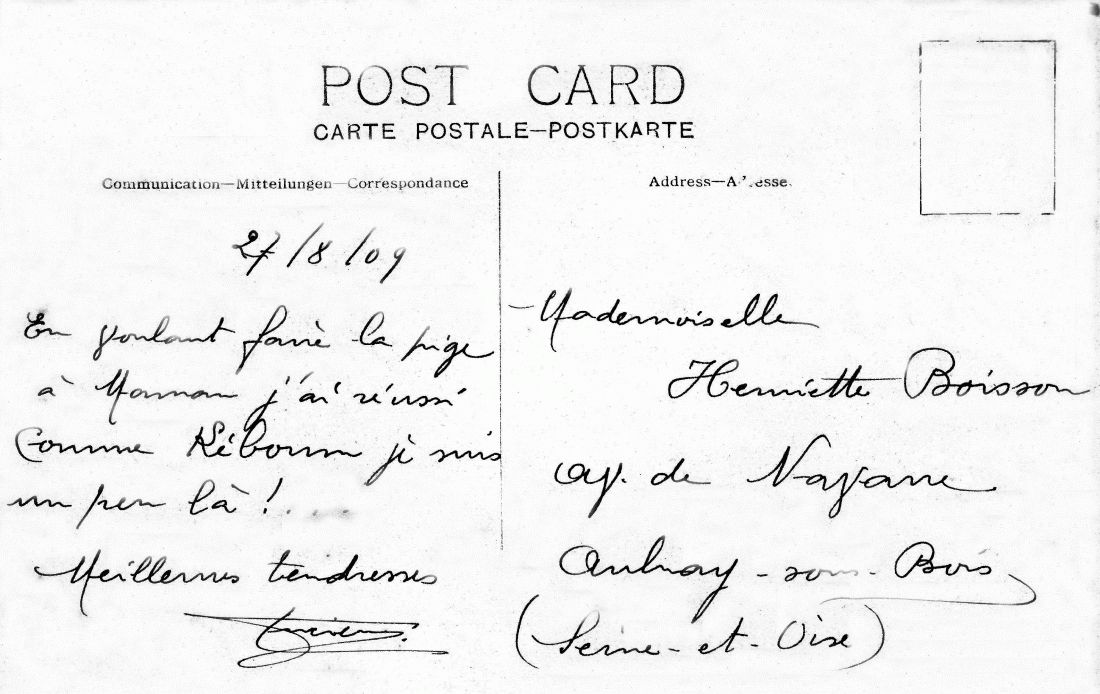 POST CARD
CARTE POSTALE—POSTKARTE
Communication—Mitteilungen—Correspondance
Address—Adresse.
27/8/09
En voulant faire la pige
à Maman j'ai réussi
Comme je suis
un peu là !...
Meilleures tendresses
Lucien
Mademoiselle
Henriette Boisson
av. de Navarre
Aulnay-sous-Bois
(Seine-et-Oise)